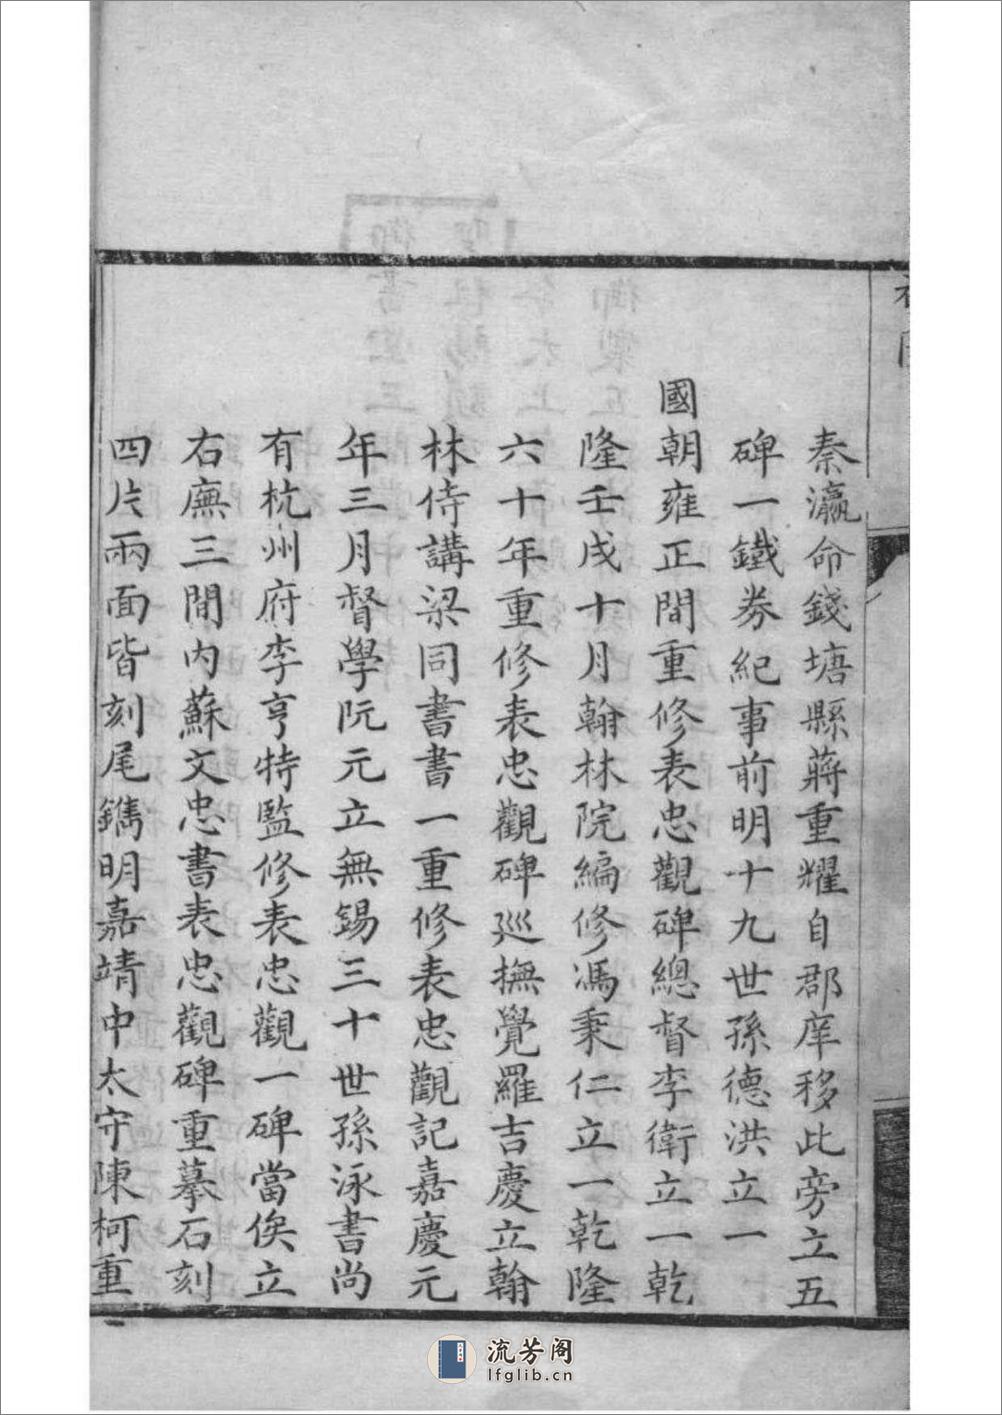 秦瀛命錢塘縣蔣重耀自郡庠移此旁立五
碑一鐵券紀事前明十九世孫德洪立一
國朝雍正間重修表忠觀碑總督李衛立一乾
隆壬戌十月翰林院編修馮秉仁立一乾隆
六十年重修表忠觀碑巡撫覺羅吉慶立翰
林侍講梁同書書一重修表忠觀記嘉慶元
年三月督學阮元立無錫三十世孫泳書尚
有杭州府李亨特監修表忠觀一碑當俟立
右廡三間內蘇文忠書表忠觀碑重摹石刻
四片兩面皆刻尾鐫明嘉靖中太守陳柯重
流芳阁
lfglib.cn